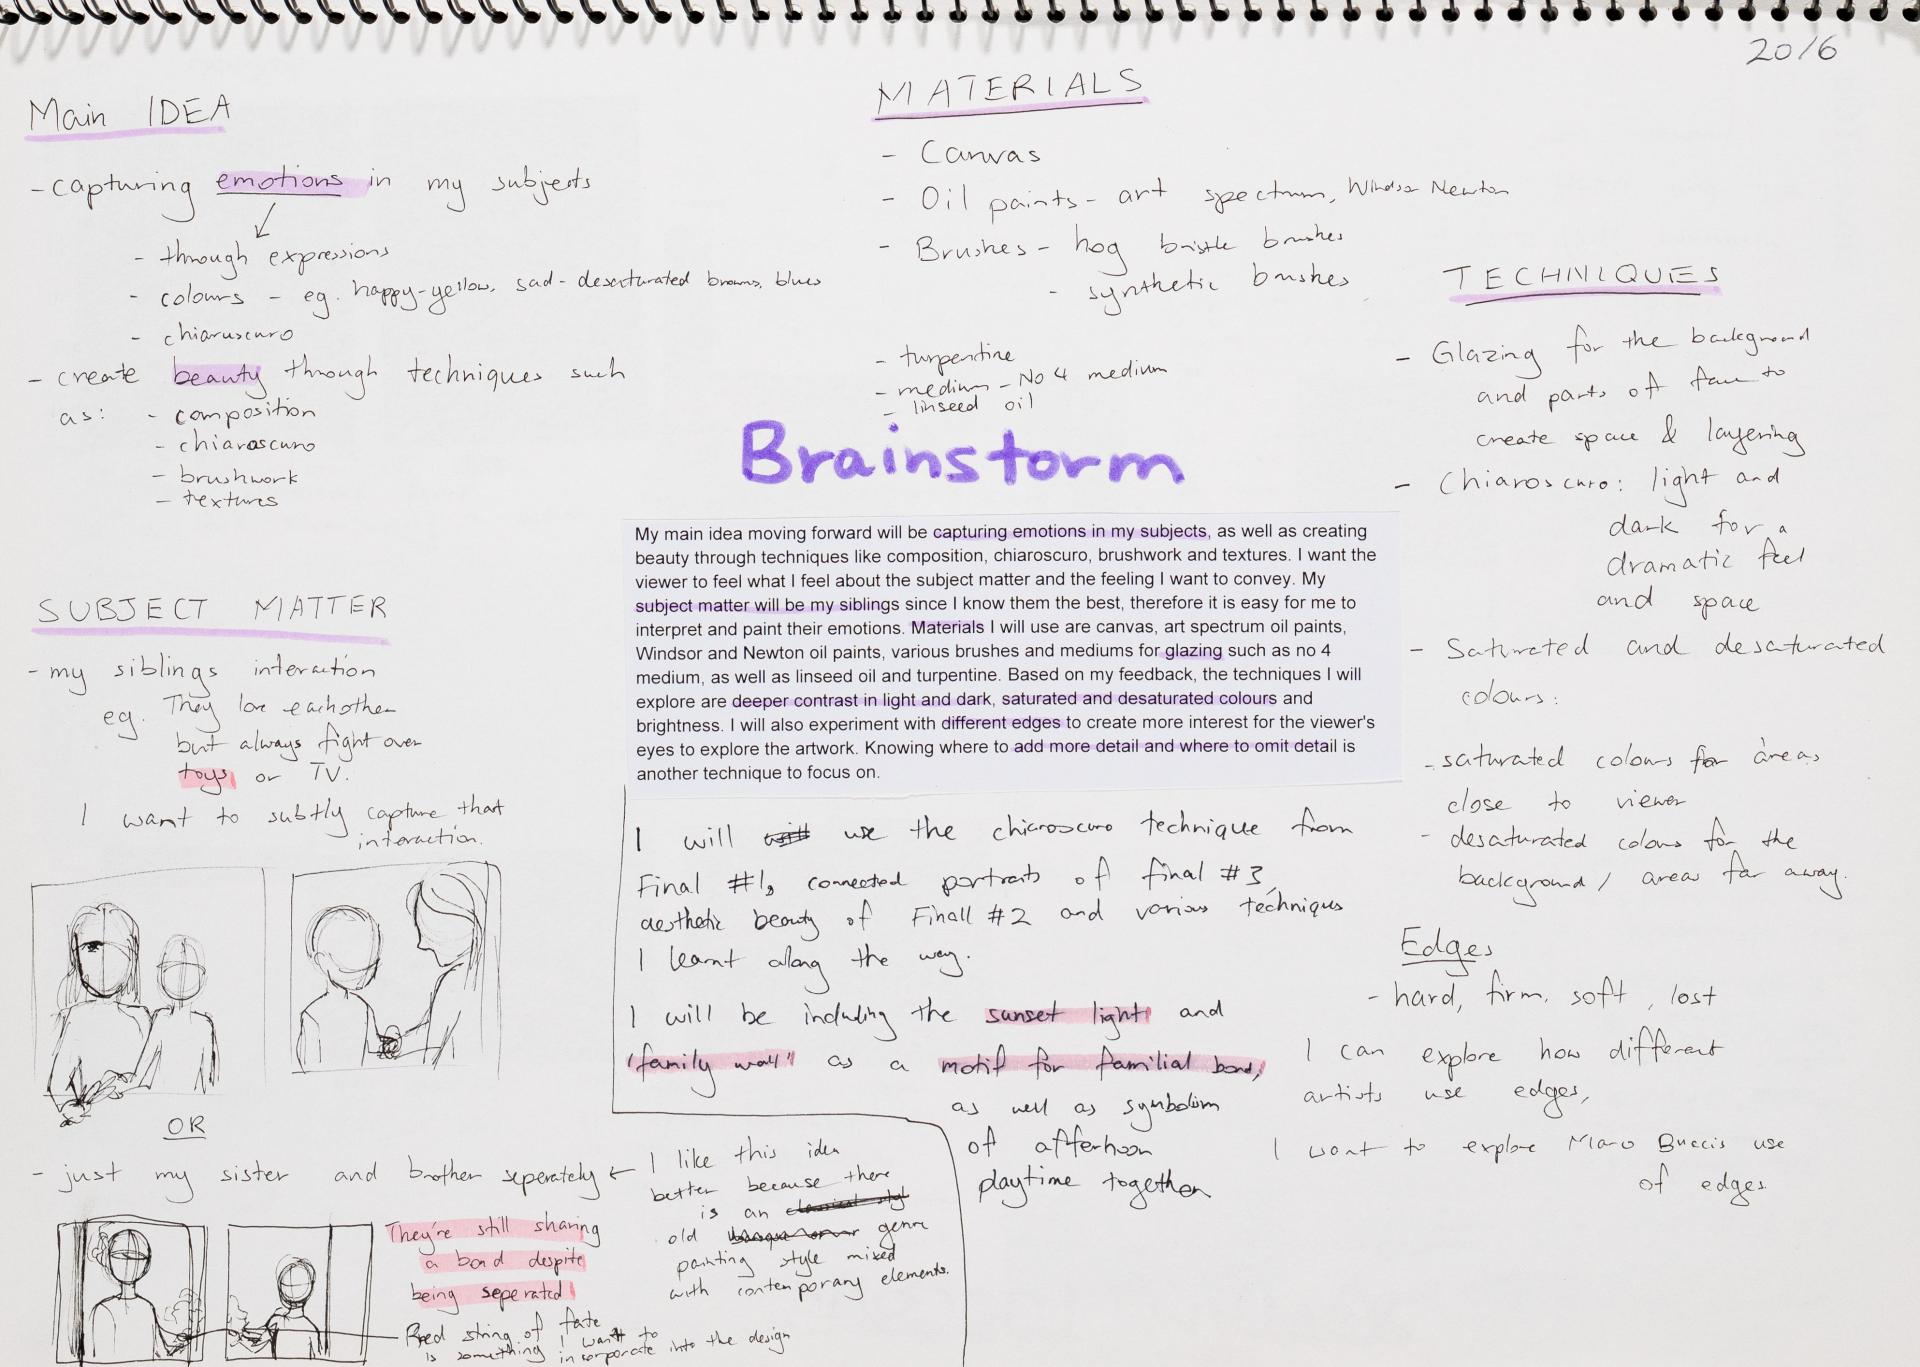 20/6
Main IDEA
- capturing emotions in my subjects
- through expressions
- colours - eg. happy-yellow, sad - desaturated browns, blues
- chiaruscuro
- create beauty through techniques such
as: - composition
- chiaroscuro
- brushwork
- textures
SUBJECT MATTER
- my siblings interaction
eg. They love eachother
but always fight over
toys or TV.
I want to subtly capture that
interaction.
OR
- just my sister and brother seperately ←
They're still sharing
a bond despite
being seperated
Red string of fate
is something I want to
incorporate into the design
I like this idea
better because there
is an
old genre
painting style mixed
with contemporary elements.
MATERIALS
- Canvas
- Oil paints - art spectrum, Windsor Newton
- Brushes - hog bristle brushes
- synthetic brushes
- turpentine
- medium - No 4 medium
- linseed oil
Brainstorm
My main idea moving forward will be capturing emotions in my subjects, as well as creating
beauty through techniques like composition, chiaroscuro, brushwork and textures. I want the
viewer to feel what I feel about the subject matter and the feeling I want to convey. My
subject matter will be my siblings since I know them the best, therefore it is easy for me to
interpret and paint their emotions. Materials I will use are canvas, art spectrum oil paints,
Windsor and Newton oil paints, various brushes and mediums for glazing such as no 4
medium, as well as linseed oil and turpentine. Based on my feedback, the techniques I will
explore are deeper contrast in light and dark, saturated and desaturated colours and
brightness. I will also experiment with different edges to create more interest for the viewer's
eyes to explore the artwork. Knowing where to add more detail and where to omit detail is
another technique to focus on.
I will use the chiaroscuro technique from
Final #1, connected portraits of final #3,
aesthetic beauty of Finall #2 and various techniques
I learnt along the way.
I will be including the sunset light and
"family wall" as a motif for familial bond,
as well as symbolism
of afternoon
playtime together
TECHNIQUES
- Glazing for the background
and parts of face to
create space & layering
- Chiaroscuro: light and
dark for a
dramatic feel
and space
- Saturated and desaturated
colours:
- saturated colours for areas
close to viewer
- desaturated colours for the
background / areas far away.
Edges
- hard, firm, soft, lost
I can explore how different
artists use edges,
I want to explore Marco Buccis use
of edges